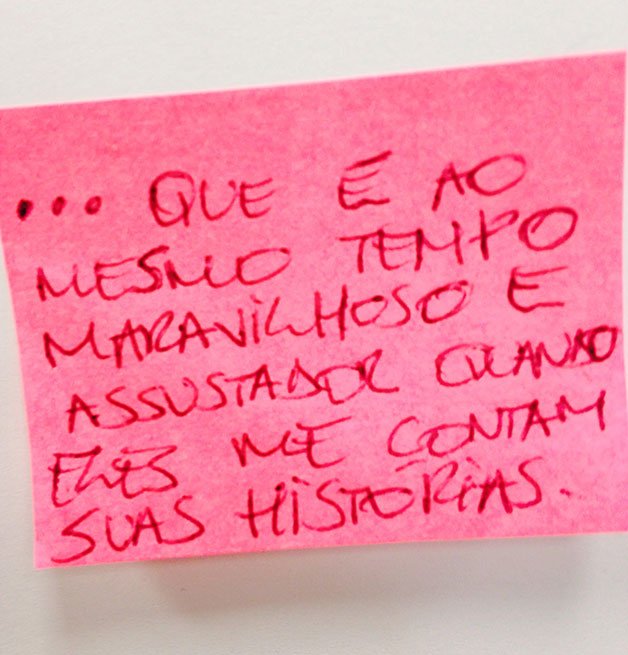 ... QUE É AO
MESMO TEMPO
MARAVILHOSO E
ASSUSTADOR QUANDO
ELES ME CONTAM
SUAS HISTÓRIAS.